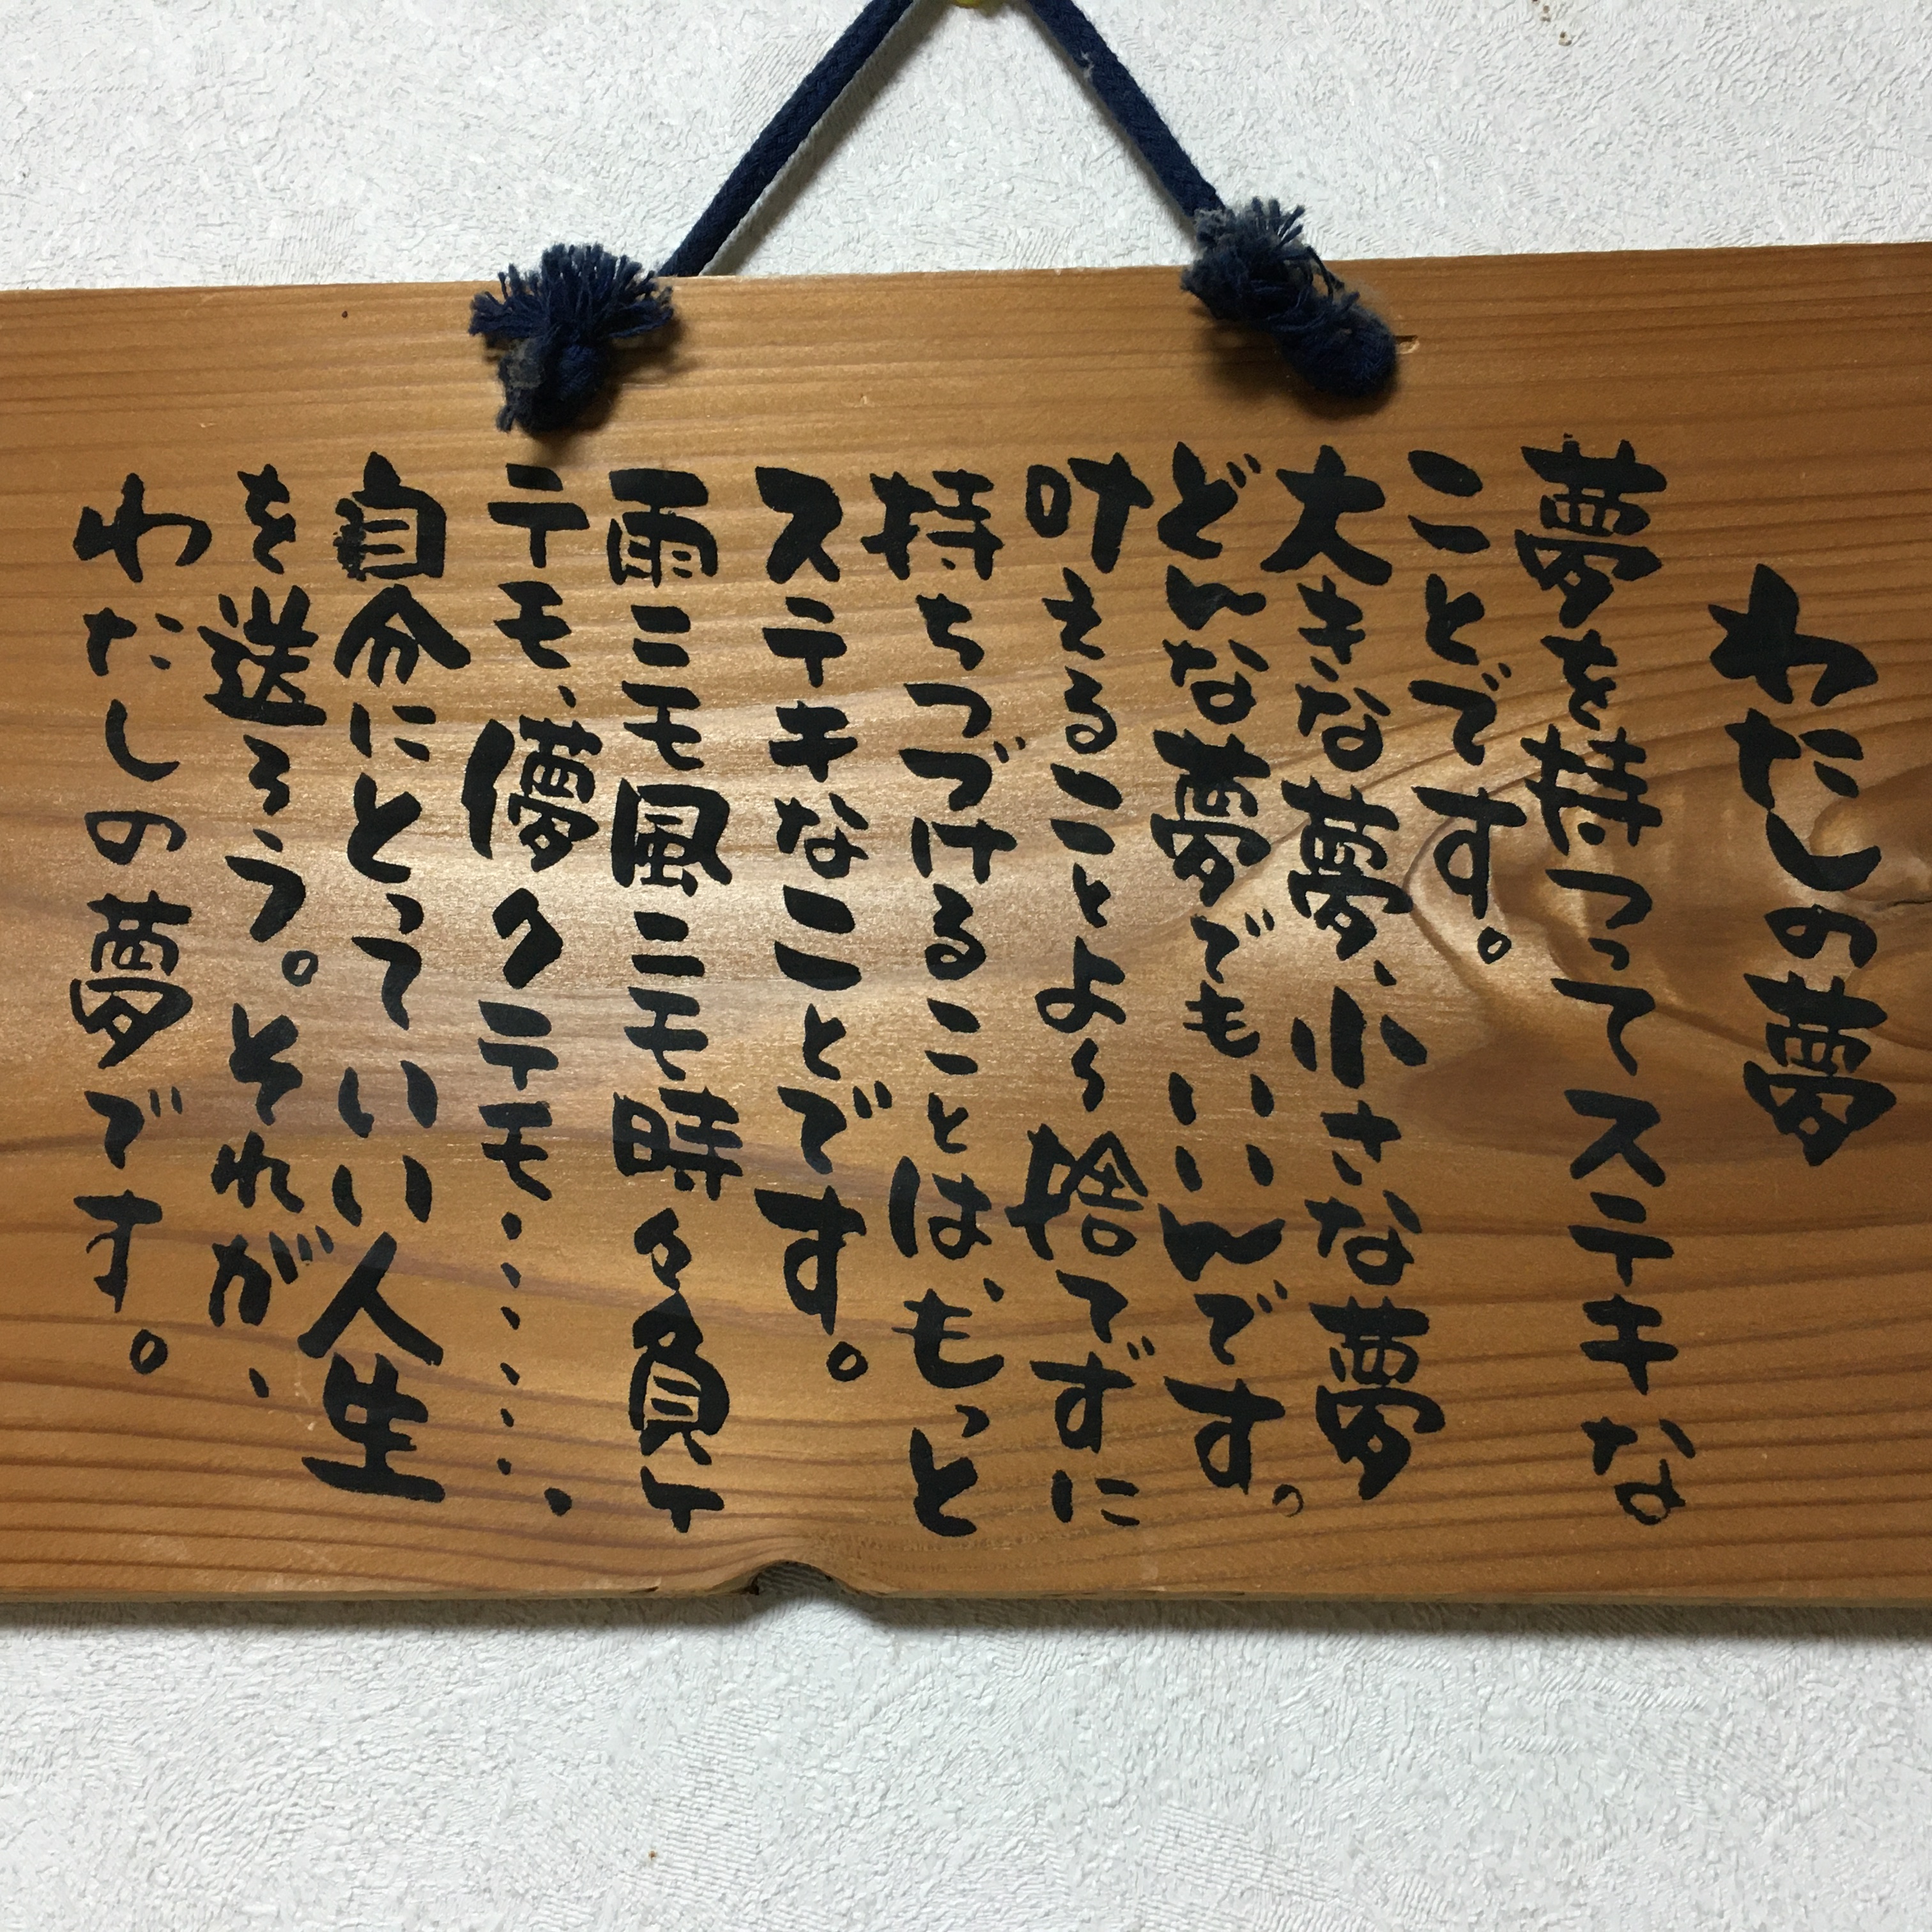 わたしの夢
夢を持つってステキな
ことです。
大きな夢、小さな夢
どんな夢でもいいんです。
叶えることより捨てずに
持ちつづけることは、もっと
ステキなことです。
雨ニモ風ニモ時々負ケ
テモ、儚クテモ・・・・・・
自分にとっていい人生
を送ろう。それが、
わたしの夢です。